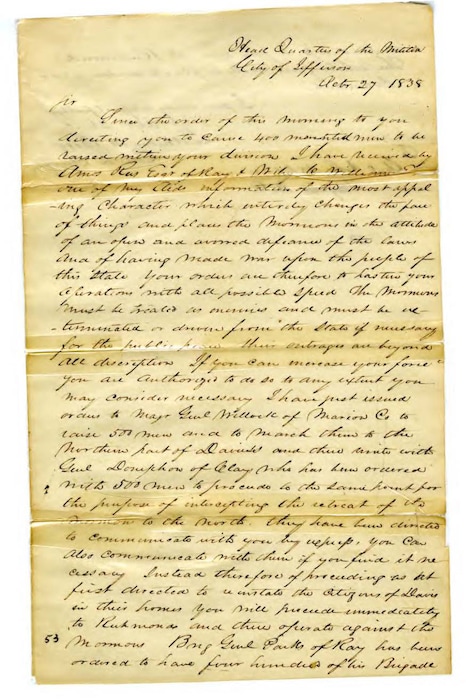 Head Quarters of the Militia
City of Jefferson
Octr. 27 1838
Sir
Since the order of this morning to you
directing you to cause 400 mounted men to be
raised within your division I have received by
Amos Rees Esqr of Ray & Wiley C Williams
one of my aids information of the most appal
-ing Character which entirely changes the face
of things and places the Mormons in the attitude
of an open and avowed defiance of the laws
and of having made war upon the people of
this State Your orders are therefore to hasten your
operations with all possible speed The Mormons
must be treated as enemies and must be ex-
-terminated or driven from the State if necessary
for the public peace their outrages are beyond
all description If you can increase your force
you are Authorized to do so to any extent you
may consider necessary I have just issued
orders to Majr Genl Willock of Marion Co to
raise 500 men and to March them to the
Northern part of Daviess and there unite with
Genl Doniphan of Clay who has been ordered
with 500 men to proceede to the same point for
the purpose of intercepting the retreat of the
Mormon to the North. They have been directed
to communicate with you by express, You can
also communicate with them if you find it ne
cessary Instead therefore of proceeding as at
first directed to reinstate the Citizens of Davis
in their homes you will proceede immediately
to Richmond and there operate against the
53
Mormons Brig Genl Parks of Ray has been
ordered to have four hundred of his Brigade